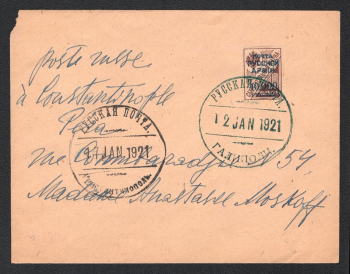 poste russe
à Constantinople
Pera
rue
54
Madame Anastasie Moskoff
ПОЧТА
РУССКОЙ
АРМІИ
РУССКАЯ ПОЧТА.
12 JAN 1921
ГАЛЛИПОЛИ
РУССКАЯ ПОЧТА.
JAN 1921